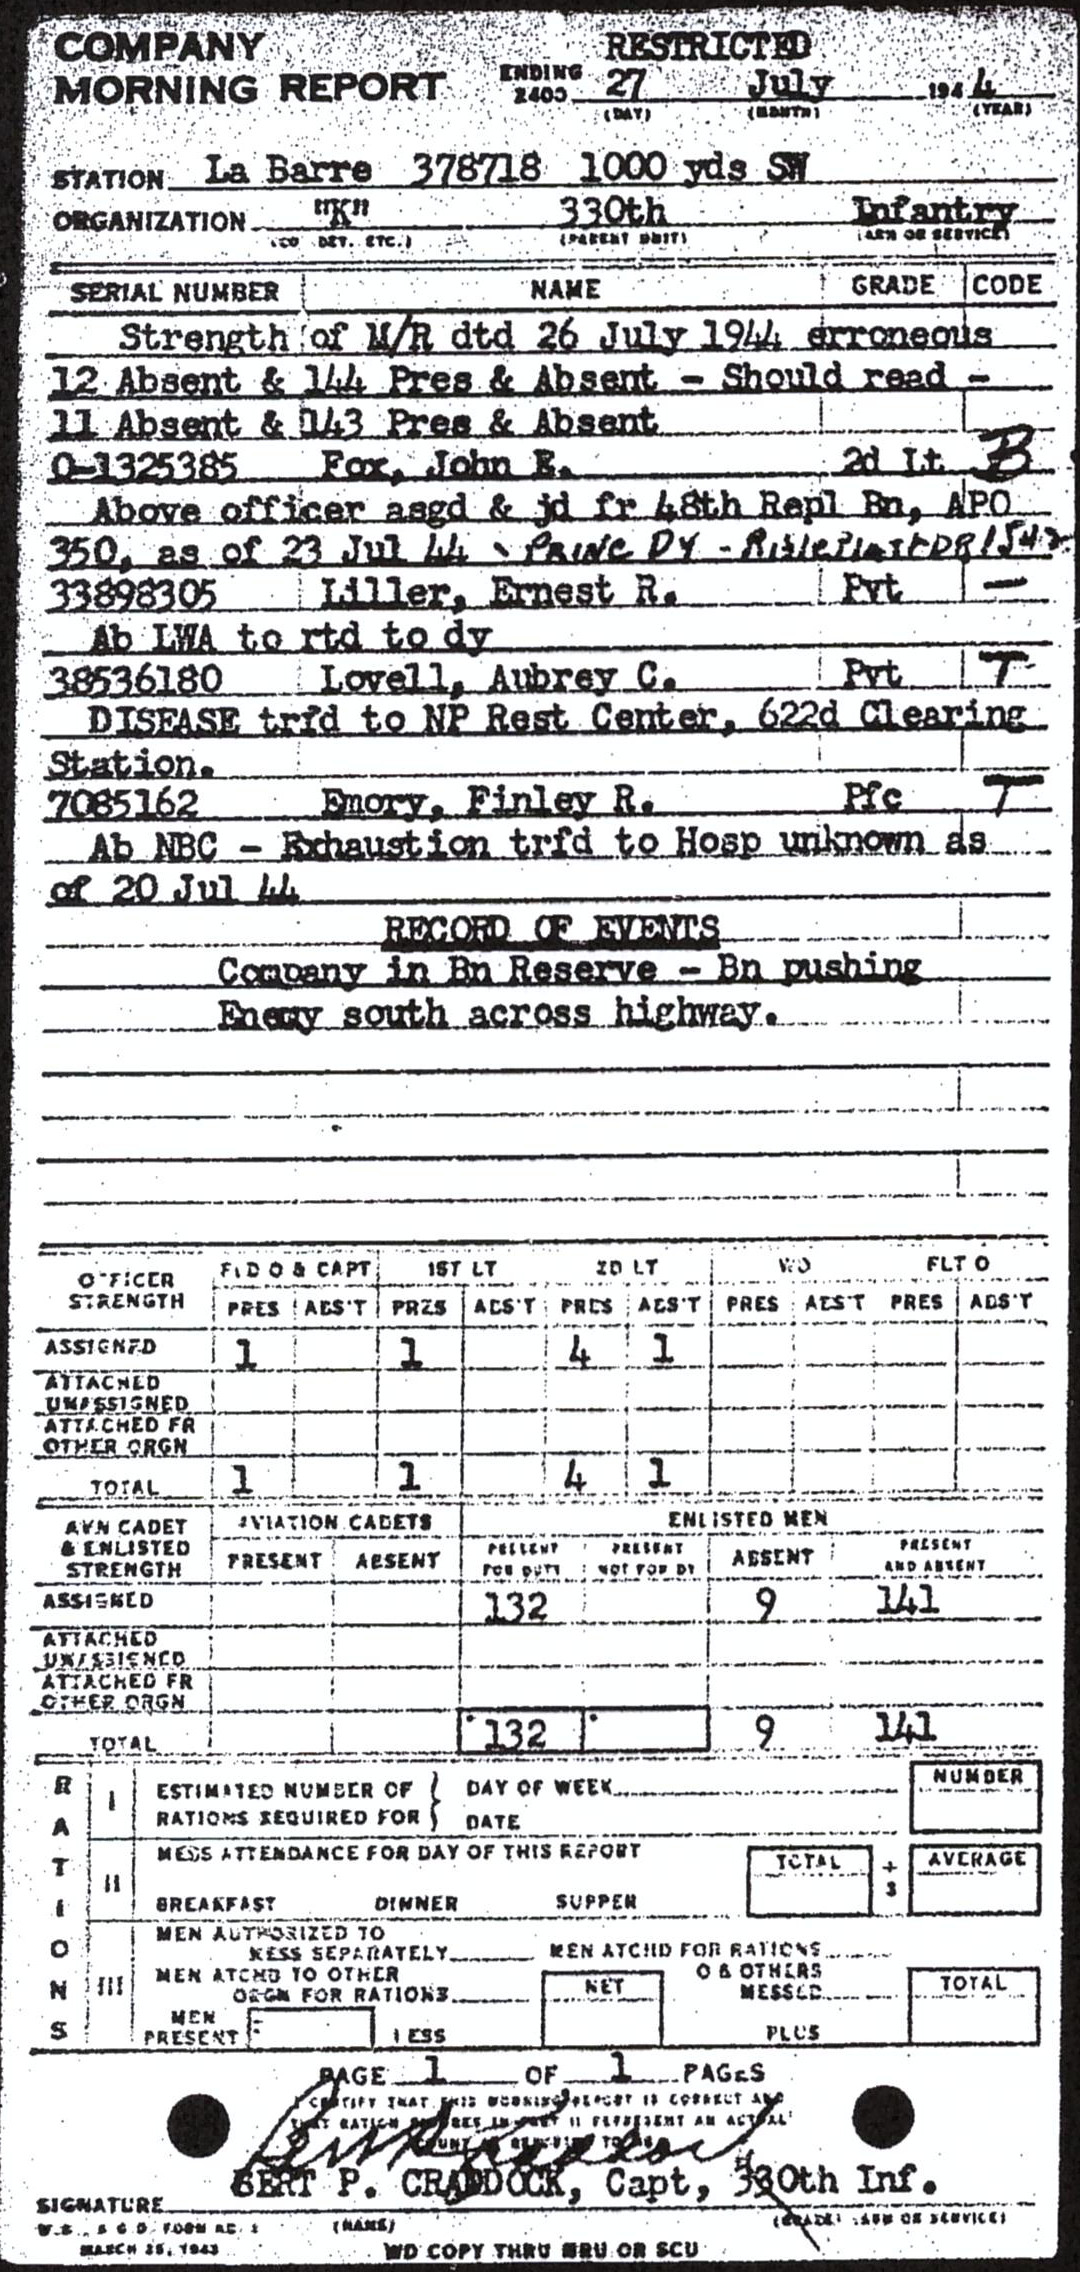 COMPANY RESTRICTED
MORNING REPORT ENDING 2400 27 July 1944
(DAY) (MONTH) (YEAR)
STATION La Barre 378718 1000 yds SW
ORGANIZATION "K" 330th Infantry
(CO. DET. ETC.) (PARENT UNIT) (ARM OR SERVICE)
SERIAL NUMBER NAME GRADE CODE
Strength of M/R dtd 26 July 1944 erroneous
12 Absent & 144 Pres & Absent - Should read -
11 Absent & 143 Pres & Absent
O-1325385 Fox, John E. 2d Lt B
Above officer asgd & jd fr 48th Repl Bn, APO
350, as of 23 Jul 44 - PRINC DY - 1542
33898305 Liller, Ernest R. Pvt —
Ab LWA to rtd to dy
38536180 Lovell, Aubrey C. Pvt T
DISEASE trfd to NP Rest Center, 622d Clearing
Station.
7085162 Emory, Finley R. Pfc T
Ab NBC - Exhaustion trfd to Hosp unknown as
of 20 Jul 44
RECORD OF EVENTS
Company in Bn Reserve - Bn pushing
Enemy south across highway.
OFFICER STRENGTH FLD O & CAPT 1ST LT 2D LT WO FLT O
PRES ABS'T PRES ABS'T PRES ABS'T PRES ABS'T PRES ABS'T
ASSIGNED 1 1 4 1
ATTACHED UNASSIGNED
ATTACHED FR OTHER ORGN
TOTAL 1 1 4 1
AVN CADET & ENLISTED STRENGTH AVIATION CADETS ENLISTED MEN
PRESENT ABSENT PRESENT FOR DUTY PRESENT NOT FOR DY ABSENT PRESENT AND ABSENT
ASSIGNED 132 9 141
ATTACHED UNASSIGNED
ATTACHED FR OTHER ORGN
TOTAL 132 9 141
RATIONS
I ESTIMATED NUMBER OF RATIONS REQUIRED FOR DAY OF WEEK NUMBER
DATE
II MESS ATTENDANCE FOR DAY OF THIS REPORT TOTAL ÷ 3 AVERAGE
BREAKFAST DINNER SUPPER
III MEN AUTHORIZED TO MESS SEPARATELY MEN ATCHD FOR RATIONS
MEN ATCHD TO OTHER ORGN FOR RATIONS NET O & OTHERS MESSED TOTAL
MEN PRESENT LESS PLUS
PAGE 1 OF 1 PAGES
I CERTIFY THAT THIS MORNING REPORT IS CORRECT AND
THAT RATION FIGURES IN PART II REPRESENT AN ACTUAL
BERT P. CRADDOCK, Capt, 330th Inf.
SIGNATURE
(NAME) (GRADE) (ARM OR SERVICE)
W.D., A.G.O. FORM NO. 1
MARCH 25, 1943
WD COPY THRU MRU OR SCU